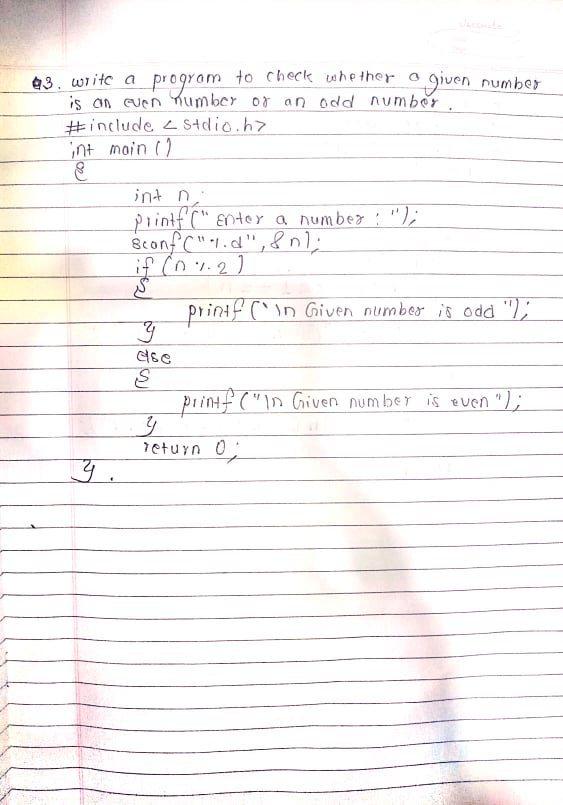 Q3. write a program to check whether a given number
is an even number or an odd number.
#include <stdio.h>
int main ()
{
int n;
printf(" Enter a number : ");
scanf("%d", &n);
if (n % 2)
{
printf("\n Given number is odd ");
}
else
{
printf("\n Given number is even");
}
return 0;
}.